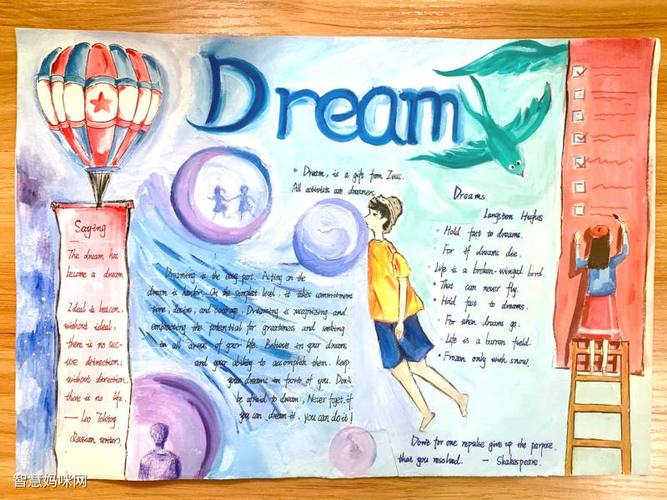 Dream
Dream, is a gift from Zeus.
All activists are dreamers.
Saying
The dream has
become a dream
Ideal is beacon,
without ideal,
there is no sec-
ure detrection;
without derection,
there is no life.
— Leo Tolstoy
(Russian writer).
Dreaming is the easy part. Acting on the
dream is harder. On the simplest level, it takes commitment
time, desire, and courage. Dreaming is recognizing and
empowering the potential for greatness and seeking
in all areas of your life. Believe in your dream
and your ability to accomplish them. Keep
your dreams in fornt of you. Don't
be afraid to dream, Never foget, if
you can dream it, you can do it!
Dreams
Langston Hughes
Hold fast to dreams.
For if dreams die.
Life is a broken-winged bird.
That can never fly.
Hold fast to dreams.
For when dreams go.
Life is a barren field.
Frozen only with snow.
Don't for one repulse give up the purpose
that you resolved. — Shakespeare.
智慧妈咪网